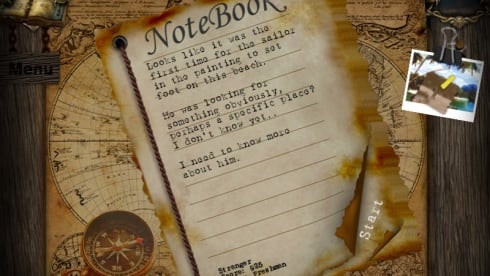 NoteBook
Looks like it was the
first time for the sailor
in the painting to set
foot on this beach.
He was looking for
something obviously,
perhaps a specific place?
I don't know yet..
I need to know more
about him.
Menu
Start
Stranger
925
Freshman